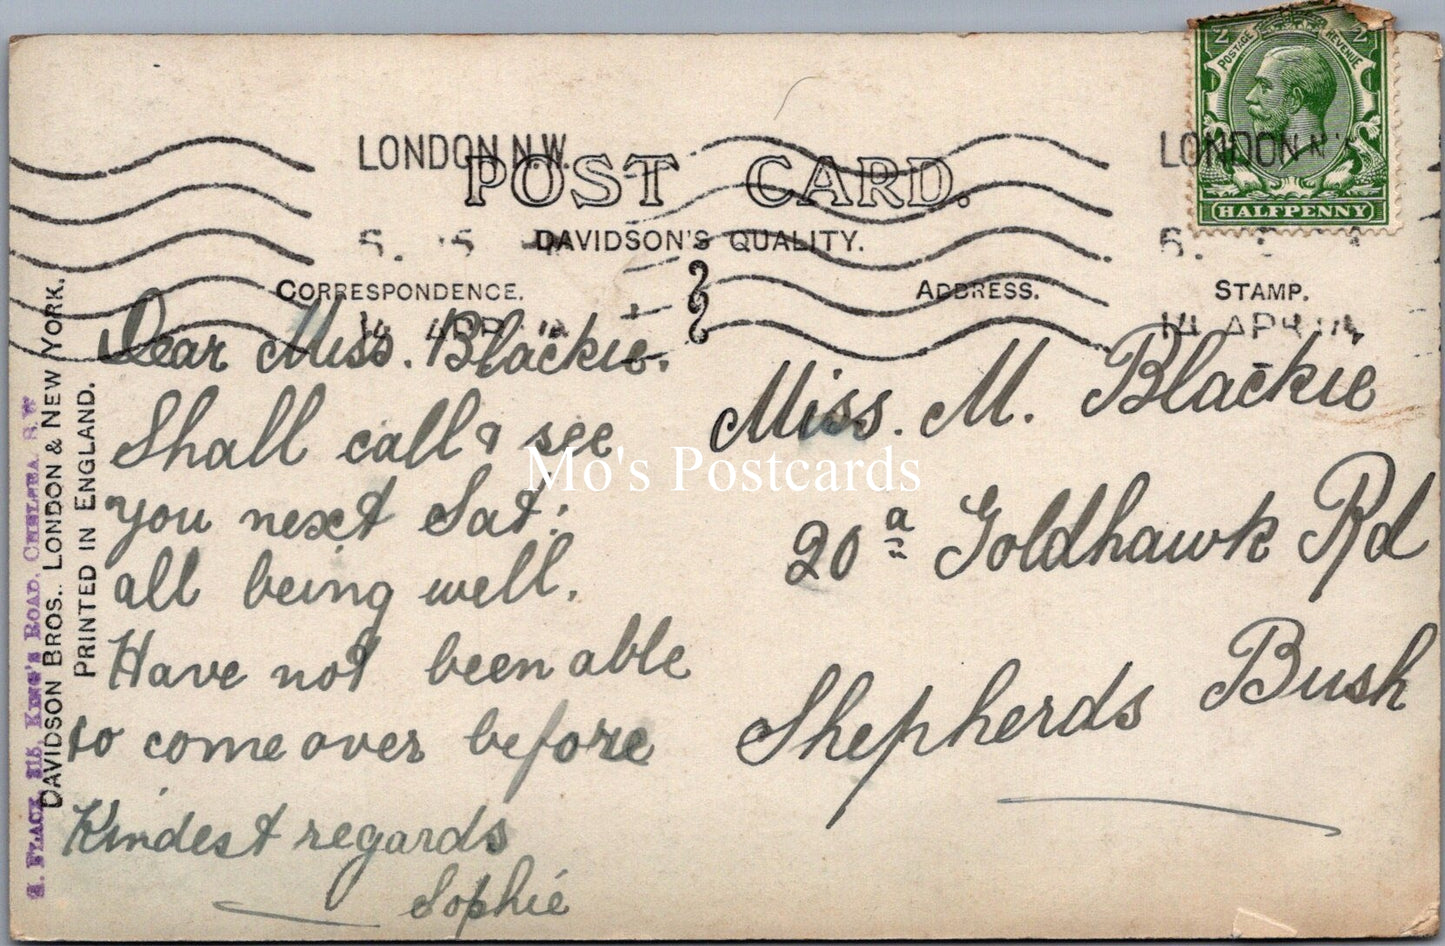 LONDON.N.W.
LONDON
POST CARD.
DAVIDSON'S QUALITY.
CORRESPONDENCE.
ADDRESS.
STAMP.
14 APR
14 APR
POSTAGE
REVENUE
HALFPENNY
Dear Miss. Blackie.
Shall call & see
you next Sat:
all being well.
Have not been able
to come over before
Kindest regards
Sophie
Miss. M. Blackie
20a Goldhawk Rd
Shepherds Bush
DAVIDSON BROS., LONDON & NEW YORK.
PRINTED IN ENGLAND.
FLACK, 315, KING'S ROAD, CHELSEA. S.W
Mo's Postcards